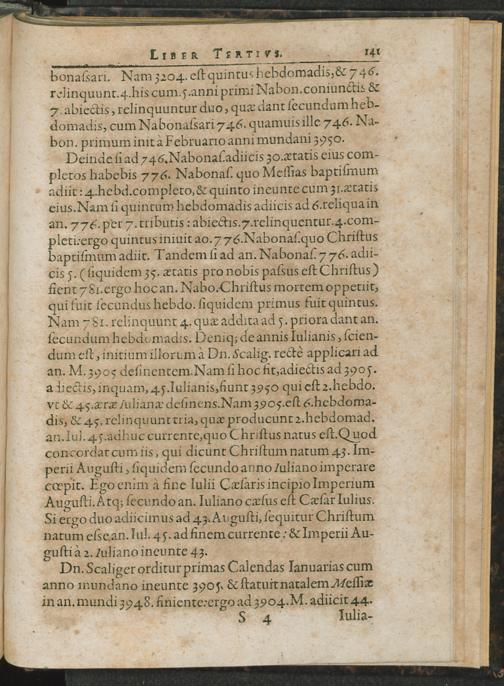 LIBER TERTIVS. 141
bonassari. Nam 3204. est quintus hebdomadis, & 746.
relinquunt. 4. his cum. 5. anni primi Nabon. coniunctis &
7. abiectis, relinquuntur duo, quæ dant secundum heb-
domadis, cum Nabonassari 746. quamuis ille 746. Na-
bon. primum init à Februario anni mundani 3950.
Deinde si ad 746. Nabonas. adiicis 30. ætatis eius com-
pletos habebis 776. Nabonas. quo Messias baptismum
adiit: 4. hebd. completo, & quinto ineunte cum 31. ætatis
eius. Nam si quintum hebdomadis adiicis ad 6. reliqua in
an. 776. per 7. tributis: abiectis. 7. relinquentur. 4. com-
pleti: ergo quintus iniuit ao. 776. Nabonas. quo Christus
baptismum adiit. Tandem si ad an. Nabonas. 776. adii-
cis 5. (siquidem 35. ætatis pro nobis passus est Christus)
fient 781. ergo hoc an. Nabo. Christus mortem oppetiit,
qui fuit secundus hebdo. siquidem primus fuit quintus.
Nam 781. relinquunt 4. quæ addita ad 5. priora dant an.
secundum hebdomadis. Deniq; de annis Iulianis, scien-
dum est, initium illorum à Dn. Scalig. rectè applicari ad
an. M. 3905 desinentem. Nam si hoc fit, adiectis ad 3905.
adiectis, inquam, 45. Iulianis, fiunt 3950 qui est 2. hebdo.
vt & 45. æræ Iulianæ desinens. Nam 3905. est 6. hebdoma-
dis, & 45. relinquunt tria, quæ producunt 2. hebdomad.
an. Iul. 45. adhuc currente, quo Christus natus est. Quod
concordat cum iis, qui dicunt Christum natum 43. Im-
perii Augusti, siquidem secundo anno Iuliano imperare
cœpit. Ego enim à fine Iulii Cæsaris incipio Imperium
Augusti. Atq; secundo an. Iuliano cæsus est Cæsar Iulius.
Si ergo duo adiicimus ad 43. Augusti, sequitur Christum
natum esse an. Iul. 45. ad finem currente: & Imperii Au-
gusti à 2. Iuliano ineunte 43.
Dn. Scaliger orditur primas Calendas Ianuarias cum
anno mundano ineunte 3905. & statuit natalem Messiæ
in an. mundi 3948. finiente: ergo ad 3904. M. adiicit 44.
S 4 Iulia-